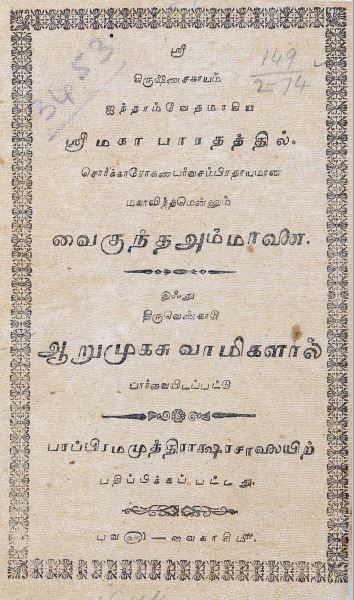 ஸ்ரீ
கிருஷ்ணசகாயம்
ஐந்தாம்வேதமாகிய
ஸ்ரீமகா பாரதத்தில்.
சொர்க்காரோகணபர்வசம்பிரதாயமான
மகாவிந்தமென்னும்
வைகுந்தஅம்மானை.
இஃது
திருவெண்காடு
ஆறுமுகசுவாமிகளால்
பார்வையிடப்பட்டு
பாப்பிரமமுத்திராக்ஷரசாலையிற்
பதிப்பிக்கப்பட்டது.
பவ௵ — வைகாசி௴.
149
274
3453